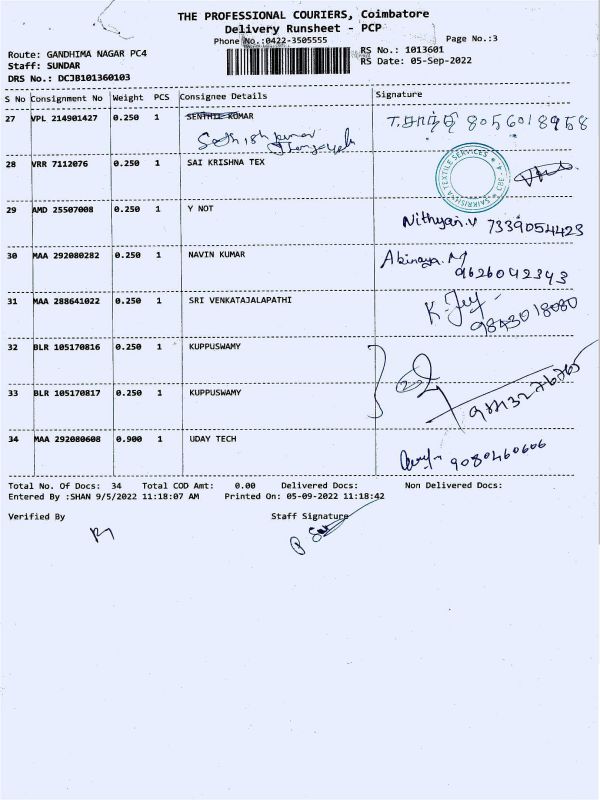 THE PROFESSIONAL COURIERS, Coimbatore
Delivery Runsheet - PCP
Phone No.:0422-3505555 Page No.:3
Route: GANDHIMA NAGAR PC4 RS No.: 1013601
Staff: SUNDAR RS Date: 05-Sep-2022
DRS No.: DCJB101360103
S No Consignment No Weight PCS Consignee Details Signature
27 VPL 214901427 0.250 1 SENTHIL KUMAR 8056018958
28 VRR 7112076 0.250 1 SAI KRISHNA TEX
SAIKRISHNA TEXTILE SERVICES
29 AMD 25507008 0.250 1 Y NOT Nithyan.v 7339054423
30 MAA 292080282 0.250 1 NAVIN KUMAR Abinaya.M
9626042343
31 MAA 288641022 0.250 1 SRI VENKATAJALAPATHI
9843018080
32 BLR 105170816 0.250 1 KUPPUSWAMY
33 BLR 105170817 0.250 1 KUPPUSWAMY
34 MAA 292080608 0.900 1 UDAY TECH
9080460606
Total No. Of Docs: 34 Total COD Amt: 0.00 Delivered Docs: Non Delivered Docs:
Entered By :SHAN 9/5/2022 11:18:07 AM Printed On: 05-09-2022 11:18:42
Verified By Staff Signature